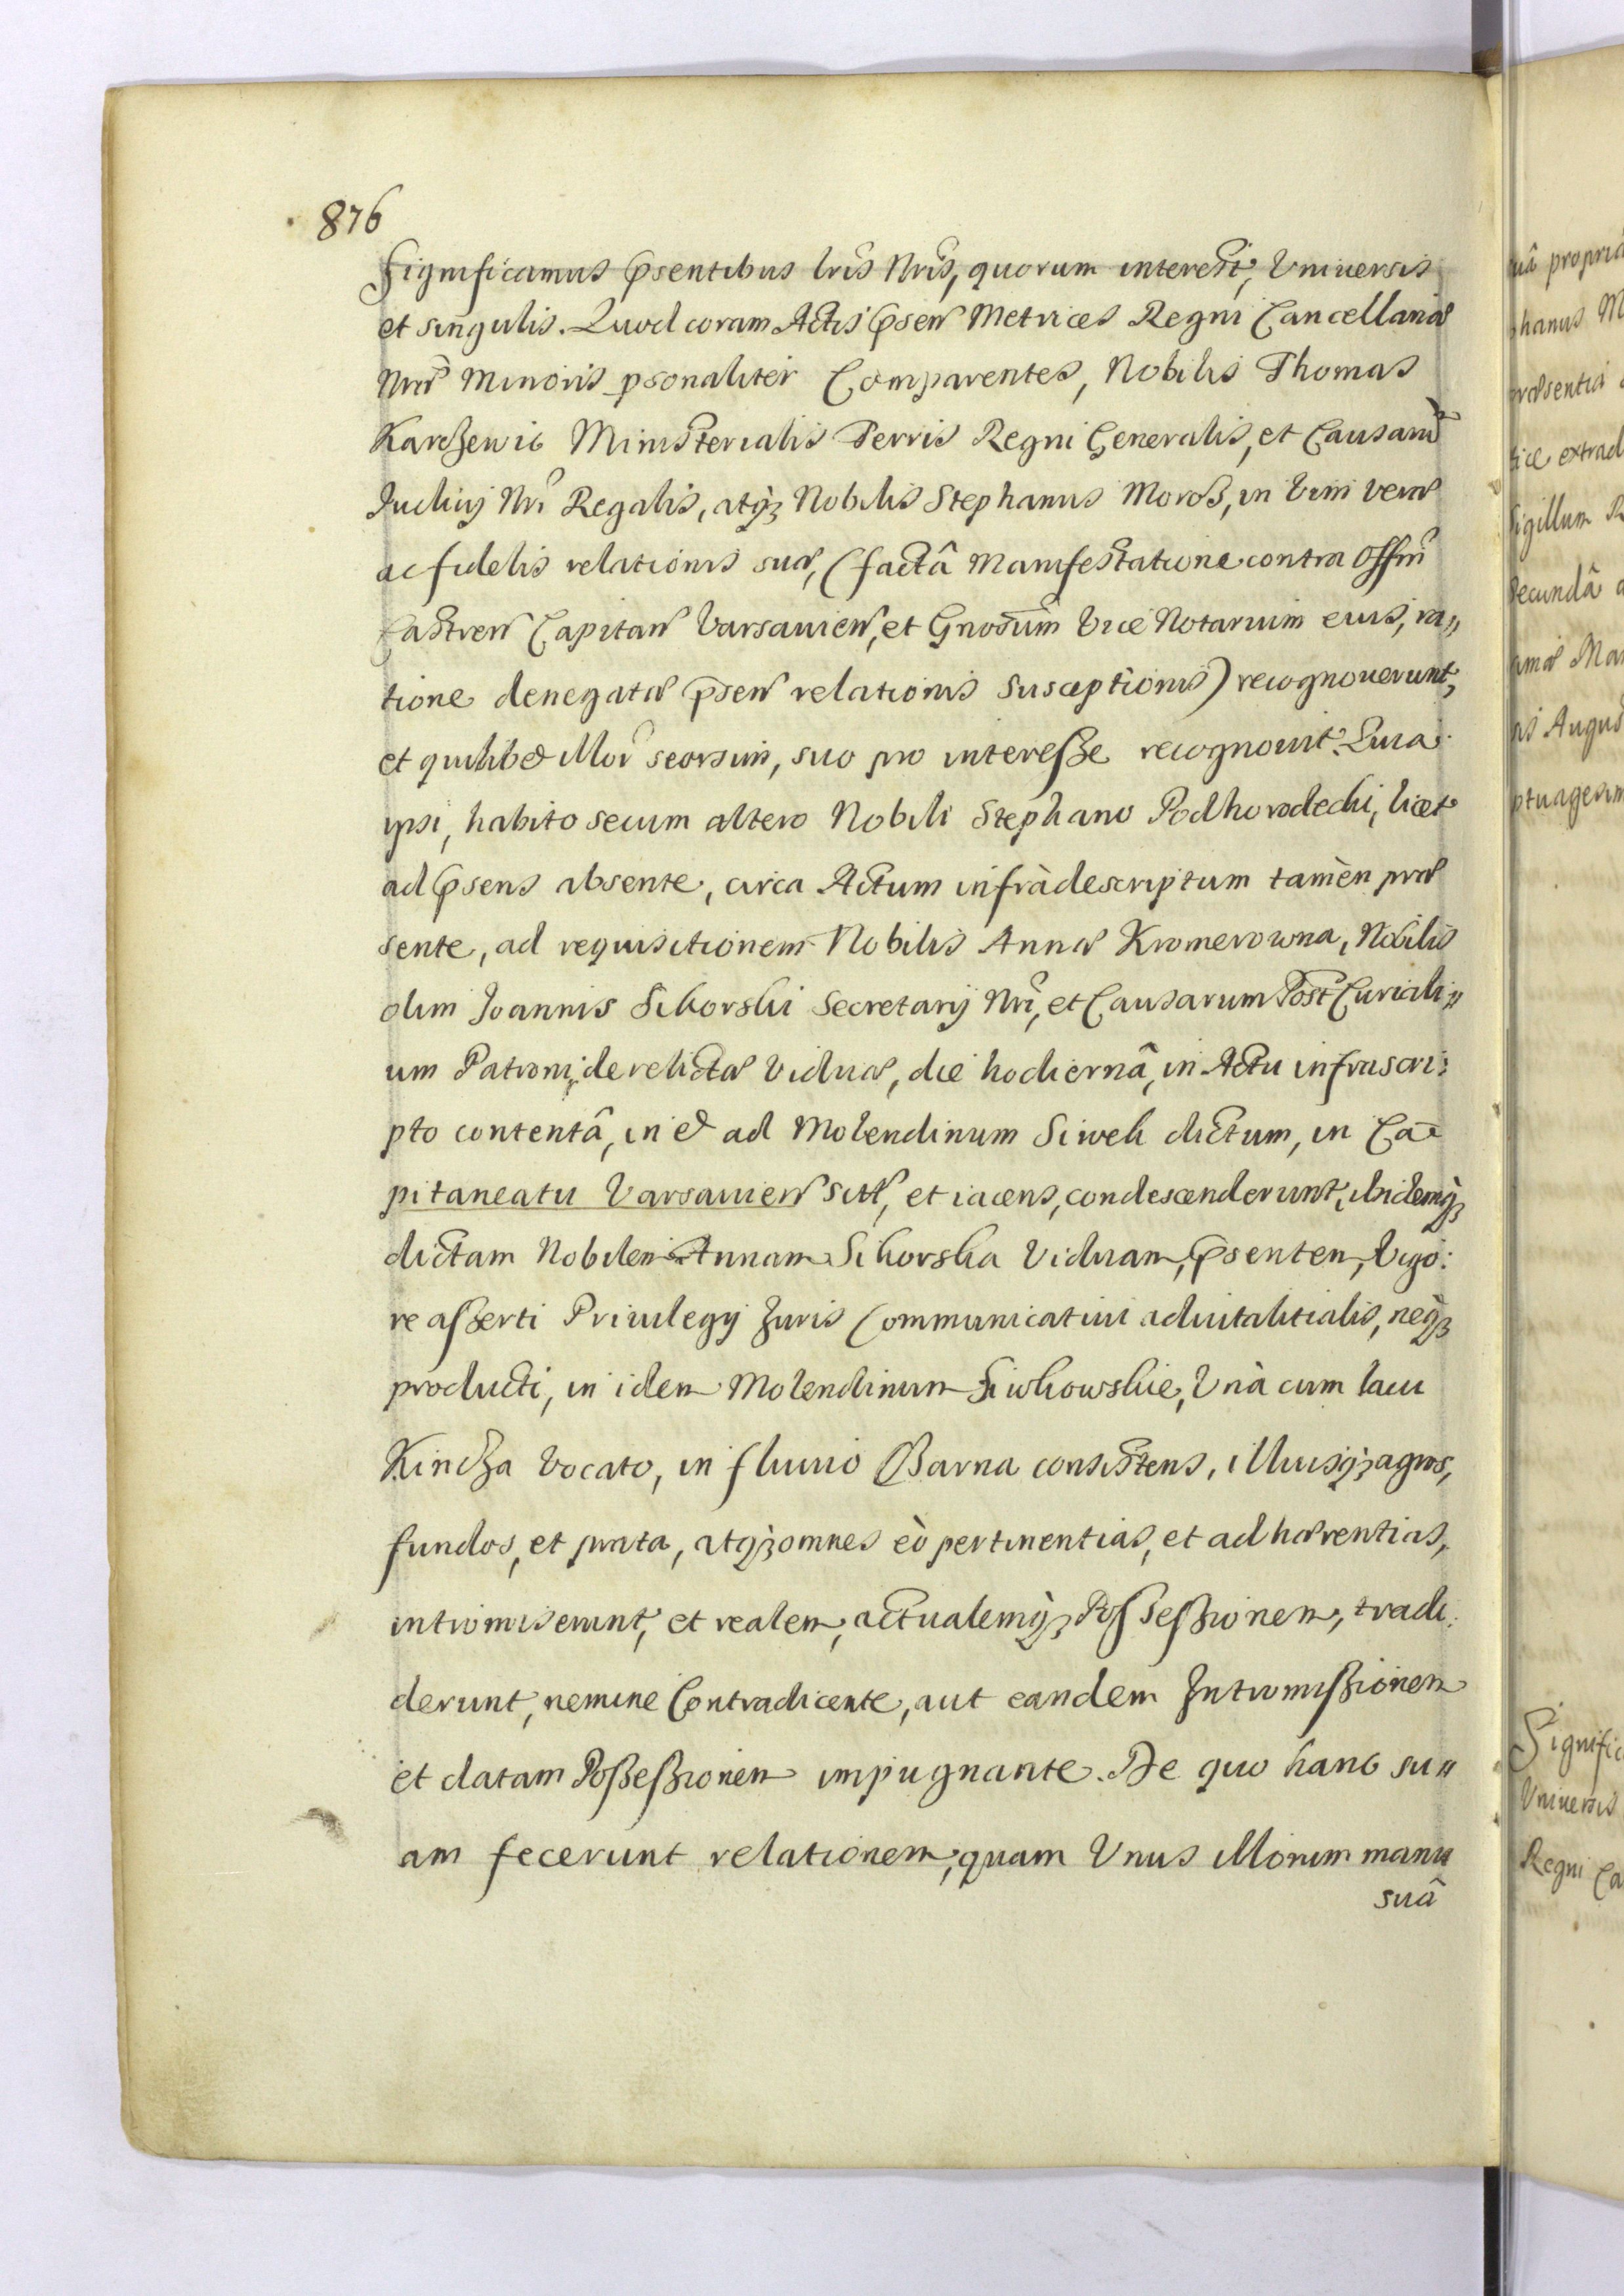 876
Significamus p̄sentibus lr̃is Nr̃is, quorum interest, Vniuersis
et singulis. Quod coram Actis p̄sen Metrices Regni Cancellariæ
Nræ Minoris psonaliter Comparentes, Nobilis Thomas
Karczewic Ministerialis Terris Regni Generalis, et Causarũ
Judicij Nri Regalis, atq3 Nobilis Stephanus Morosz, in Vim veræ
ac fidelis relationis suæ, (factâ Manifestatione contra Offm̃
Castren Capitan Varsauien, et Gnosum Vice Notarium eius, ra„
tione denegatæ p̄sen relationis Susceptionis) recognouerunt,
et quilibet illor seorsim, suo pro interesse recognouit. Quia
ipsi, habito secum altero Nobili Stephano Podhorodecki, licet
ad p̄sens absente, circa Actum infràdescriptum tamèn præ
sente, ad requisitionem Nobilis Annæ Kromerowna, Nobilis
olim Joannis Sikorski Secretarij Nri, et Causarum Post Curiali„
um Patroni, derelictæ Viduæ, die hodiernâ, in Actu infrascri:
pto contentâ, in et ad Molendinum Siwek dictum, in Ca=
pitaneatu Varsauien sitt, et iacens, condescenderunt, ibidemq3
dictam Nobilem Annam Sikorska Viduam, p̄sentem, Vigo:
re asserti Priuilegij Juris Communicatiui aduitalitialis, neq3
producti, in idem Molendinum Siwkowskie, Vnà cum lacu
Kincza Vocato, in fluuio Czarna consistens, illiusq3 agros,
fundos, et prata, atq3 omnes eò pertinentias, et adhærentias,
intromiserunt, et realem, actualemq3 Possessionem, tradi:
derunt, nemine Contradicente, aut eandem Intromissionem
et datam Possessionem impugnante. De quo hanc su„
am fecerunt relationem, quam Vnus illorum manu
suâ